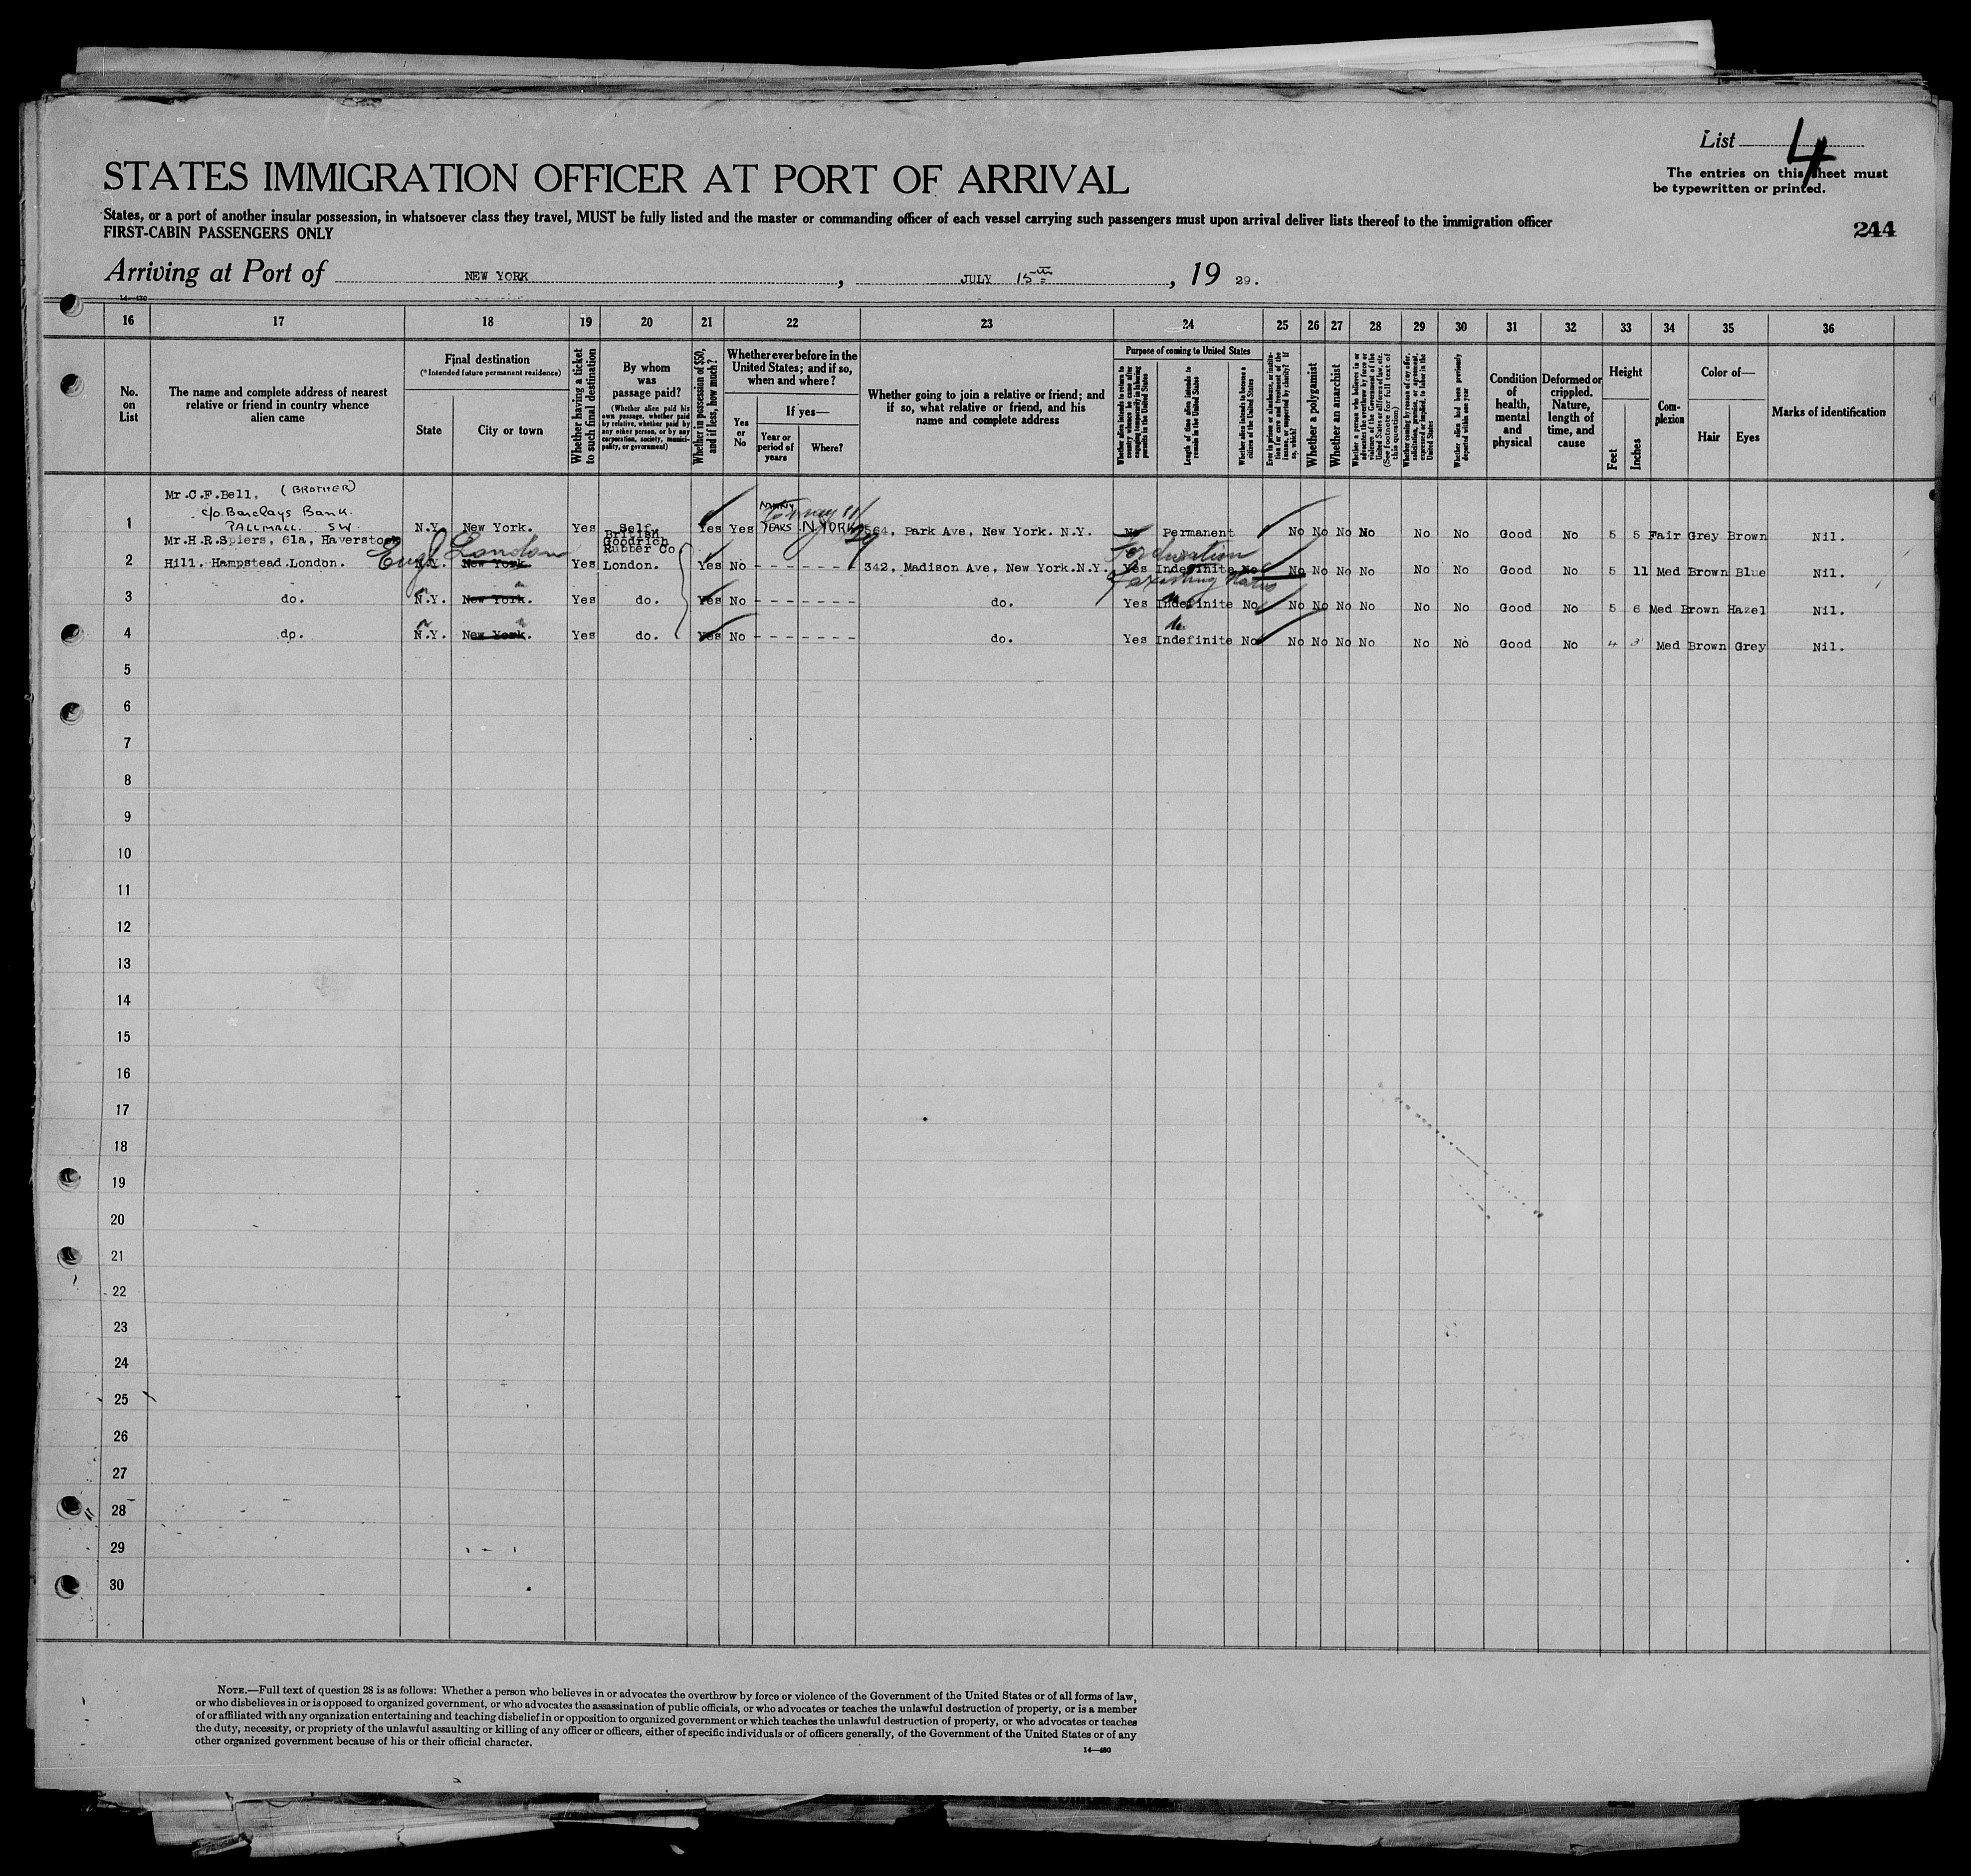 List 4
The entries on this sheet must
be typewritten or printed.
STATES IMMIGRATION OFFICER AT PORT OF ARRIVAL
States, or a port of another insular possession, in whatsoever class they travel, MUST be fully listed and the master or commanding officer of each vessel carrying such passengers must upon arrival deliver lists thereof to the immigration officer
FIRST-CABIN PASSENGERS ONLY
244
Arriving at Port of NEW YORK, JULY 15th, 19 29.
14—430
16 17 18 19 20 21 22 23 24 25 26 27 28 29 30 31 32 33 34 35 36
No. on List
The name and complete address of nearest relative or friend in country whence alien came
Final destination
(* Intended future permanent residence)
State
City or town
Whether having a ticket to such final destination
By whom was passage paid?
(Whether alien paid his own passage, whether paid by relative, whether paid by any other person, or by any corporation, society, municipality, or government)
Whether in possession of $50, and if less, how much?
Whether ever before in the United States; and if so, when and where?
Yes or No
If yes—
Year or period of years
Where?
Whether going to join a relative or friend; and if so, what relative or friend, and his name and complete address
Purpose of coming to United States
Whether alien intends to return to country whence he came after engaging temporarily in laboring pursuits in the United States
Length of time alien intends to remain in the United States
Whether alien intends to become a citizen of the United States
Ever in prison or almshouse, or institution for care and treatment of the insane, or supported by charity? If so, which?
Whether a polygamist
Whether an anarchist
Whether a person who believes in or advocates the overthrow by force or violence of the Government of the United States or all forms of law, etc. (See footnote for full text of this question)
Whether coming by reason of any offer, solicitation, promise, or agreement, expressed or implied, to labor in the United States
Whether alien had been previously deported within one year
Condition of health, mental and physical
Deformed or crippled. Nature, length of time, and cause
Height
Feet
Inches
Complexion
Color of—
Hair
Eyes
Marks of identification
Mr.C.F.Bell, (BROTHER)
c/o Barclays Bank.
1 PALLMALL. SW. N.Y. New York. Yes Self. Yes Yes YEARS N.YORK 564, Park Ave, New York. N.Y. No Permanent No No No No No No Good No 5 5 Fair Grey Brown Nil.
Mr.H.R.Spiers, 61a, Haverstock British Goodrich Rubber Co
Engl London
2 Hill. Hampstead.London. N.Y. New York. Yes London. Yes No ------- 342, Madison Ave, New York.N.Y. Yes Indefinite No No No No No No No Good No 5 11 Med Brown Blue Nil.
3 do. N.Y. New York. Yes do. Yes No ------- do. Yes Indefinite No No No No No No No Good No 5 6 Med Brown Hazel Nil.
4 do. N.Y. New York. Yes do. Yes No ------- do. Yes Indefinite No No No No No No No Good No 4 3 Med Brown Grey Nil.
5
6
7
8
9
10
11
12
13
14
15
16
17
18
19
20
21
22
23
24
25
26
27
28
29
30
NOTE.—Full text of question 28 is as follows: Whether a person who believes in or advocates the overthrow by force or violence of the Government of the United States or of all forms of law,
or who disbelieves in or is opposed to organized government, or who advocates the assassination of public officials, or who advocates or teaches the unlawful destruction of property, or is a member
of or affiliated with any organization entertaining and teaching disbelief in or opposition to organized government or which teaches the unlawful destruction of property, or who advocates or teaches
the duty, necessity, or propriety of the unlawful assaulting or killing of any officer or officers, either of specific individuals or of officers generally, of the Government of the United States or of any
other organized government because of his or their official character.
14—430